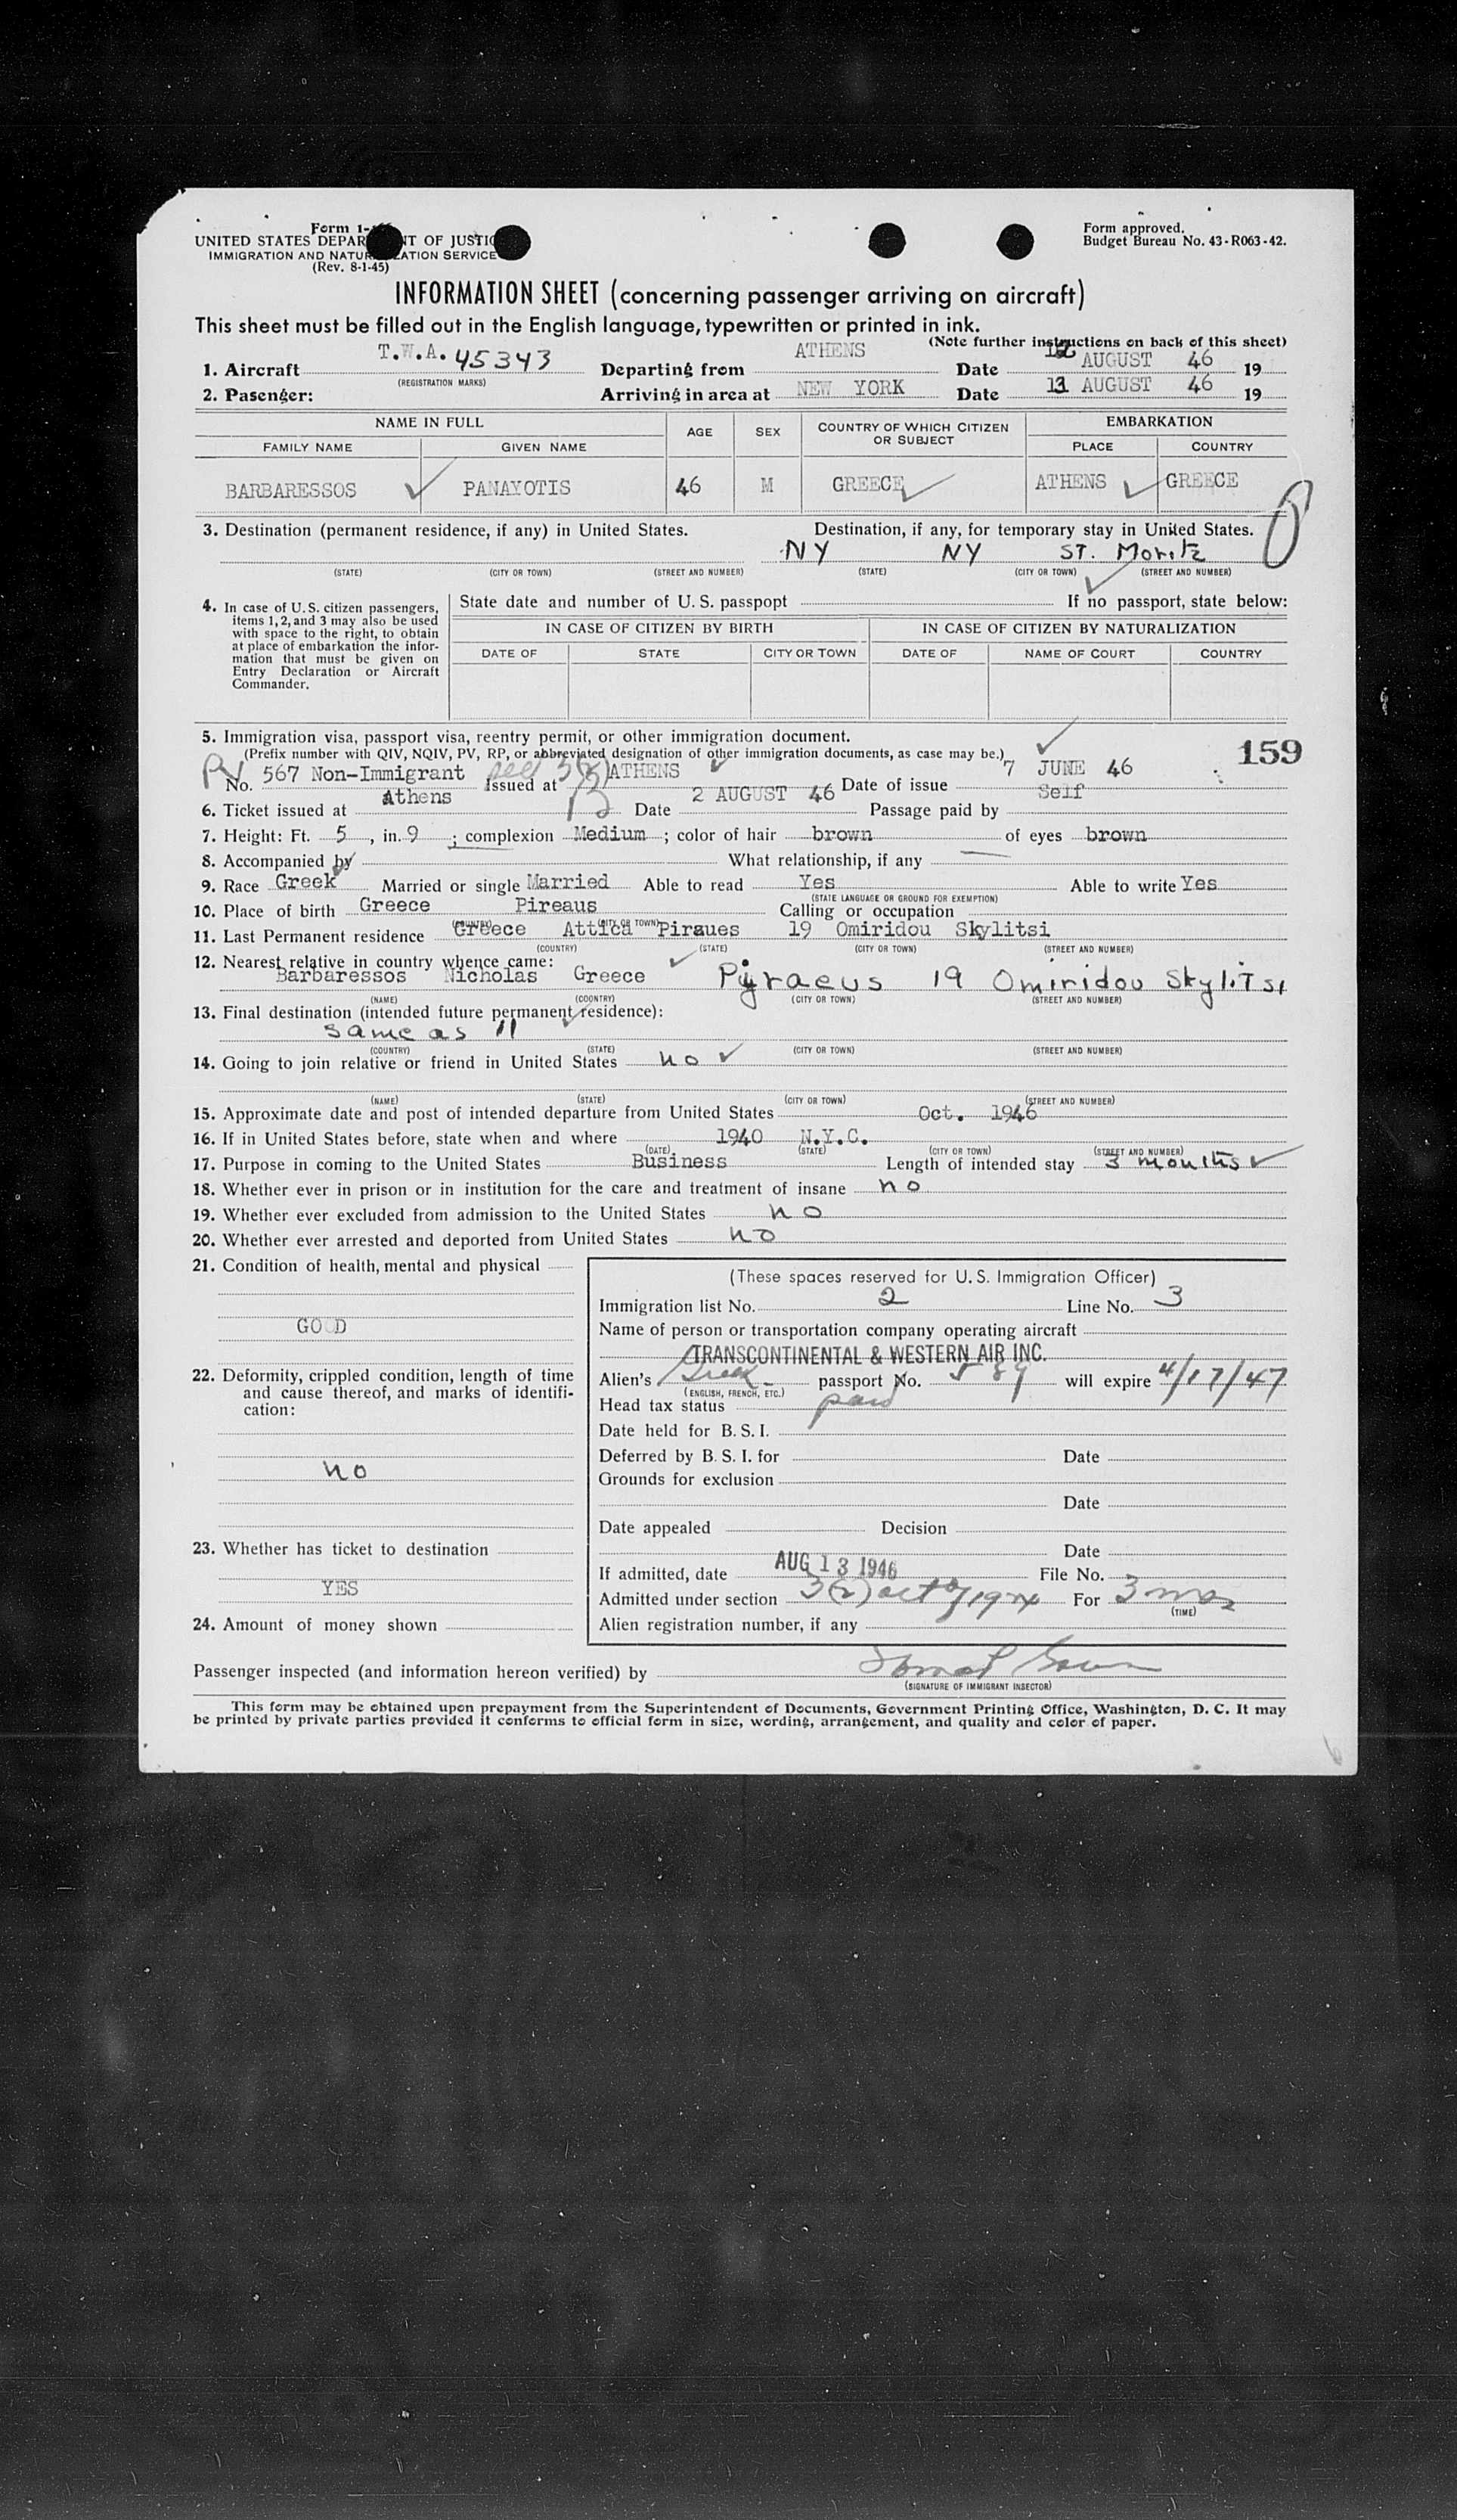 Form 1-
UNITED STATES DEPAR NT OF JUSTIC
IMMIGRATION AND NATUR ATION SERVICE
(Rev. 8-1-45)
Form approved.
Budget Bureau No. 43-R063-42.
INFORMATION SHEET (concerning passenger arriving on aircraft)
This sheet must be filled out in the English language, typewritten or printed in ink.
(Note further instructions on back of this sheet)
1. Aircraft T.W.A. 45343 Departing from ATHENS Date 12 AUGUST 46 19
(REGISTRATION MARKS)
2. Pasenger: Arriving in area at NEW YORK Date 13 AUGUST 46 19
NAME IN FULL AGE SEX COUNTRY OF WHICH CITIZEN OR SUBJECT EMBARKATION
FAMILY NAME GIVEN NAME PLACE COUNTRY
BARBARESSOS PANAYOTIS 46 M GREECE ATHENS GREECE
3. Destination (permanent residence, if any) in United States. Destination, if any, for temporary stay in United States.
NY NY ST. Moritz
(STATE) (CITY OR TOWN) (STREET AND NUMBER) (STATE) (CITY OR TOWN) (STREET AND NUMBER)
4. In case of U.S. citizen passengers, items 1, 2, and 3 may also be used with space to the right, to obtain at place of embarkation the information that must be given on Entry Declaration or Aircraft Commander.
State date and number of U.S. passpopt If no passport, state below:
IN CASE OF CITIZEN BY BIRTH IN CASE OF CITIZEN BY NATURALIZATION
DATE OF STATE CITY OR TOWN DATE OF NAME OF COURT COUNTRY
5. Immigration visa, passport visa, reentry permit, or other immigration document.
(Prefix number with QIV, NQIV, PV, RP, or abbreviated designation of other immigration documents, as case may be.)
159
PV No. 567 Non-Immigrant sec 3(2) Issued at ATHENS Date of issue 7 JUNE 46
6. Ticket issued at Athens Date 2 AUGUST 46 Passage paid by Self
7. Height: Ft. 5, in. 9; complexion Medium; color of hair brown of eyes brown
8. Accompanied by What relationship, if any
9. Race Greek Married or single Married Able to read Yes Able to write Yes
(STATE LANGUAGE OR GROUND FOR EXEMPTION)
10. Place of birth Greece Pireaus Calling or occupation
(COUNTRY) (CITY OR TOWN)
11. Last Permanent residence Greece Attica Piraues 19 Omiridou Skylitsi
(COUNTRY) (STATE) (CITY OR TOWN) (STREET AND NUMBER)
12. Nearest relative in country whence came:
Barbaressos Nicholas Greece Pyraeus 19 Omiridou Skylitsi
(NAME) (COONTRY) (CITY OR TOWN) (STREET AND NUMBER)
13. Final destination (intended future permanent residence):
same as 11
(COUNTRY) (STATE) (CITY OR TOWN) (STREET AND NUMBER)
14. Going to join relative or friend in United States no
(NAME) (STATE) (CITY OR TOWN) (STREET AND NUMBER)
15. Approximate date and post of intended departure from United States Oct. 1946
16. If in United States before, state when and where 1940 N.Y.C.
(DATE) (STATE) (CITY OR TOWN) (STREET AND NUMBER)
17. Purpose in coming to the United States Business Length of intended stay 3 months
18. Whether ever in prison or in institution for the care and treatment of insane no
19. Whether ever excluded from admission to the United States no
20. Whether ever arrested and deported from United States no
21. Condition of health, mental and physical
GOOD
22. Deformity, crippled condition, length of time and cause thereof, and marks of identification:
no
23. Whether has ticket to destination
YES
24. Amount of money shown
(These spaces reserved for U.S. Immigration Officer)
Immigration list No. 2 Line No. 3
Name of person or transportation company operating aircraft
TRANSCONTINENTAL & WESTERN AIR INC.
Alien's Greek passport No. 589 will expire 4/17/47
(ENGLISH, FRENCH, ETC.)
Head tax status paid
Date held for B.S.I.
Deferred by B.S.I. for Date
Grounds for exclusion
Date
Date appealed Decision
Date
If admitted, date AUG 13 1946 File No.
Admitted under section 3(2) act of 1924 For 3 mos
(TIME)
Alien registration number, if any
Passenger inspected (and information hereon verified) by
(SIGNATURE OF IMMIGRANT INSECTOR)
This form may be obtained upon prepayment from the Superintendent of Documents, Government Printing Office, Washington, D. C. It may
be printed by private parties provided it conforms to official form in size, wording, arrangement, and quality and color of paper.